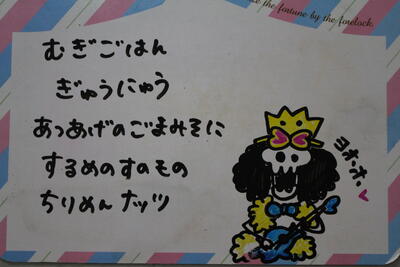 the fortune by the forelock.
むぎごはん
ぎゅうにゅう
あつあげのごまみそに
するめのすのもの
ちりめんナッツ
ヨホホ